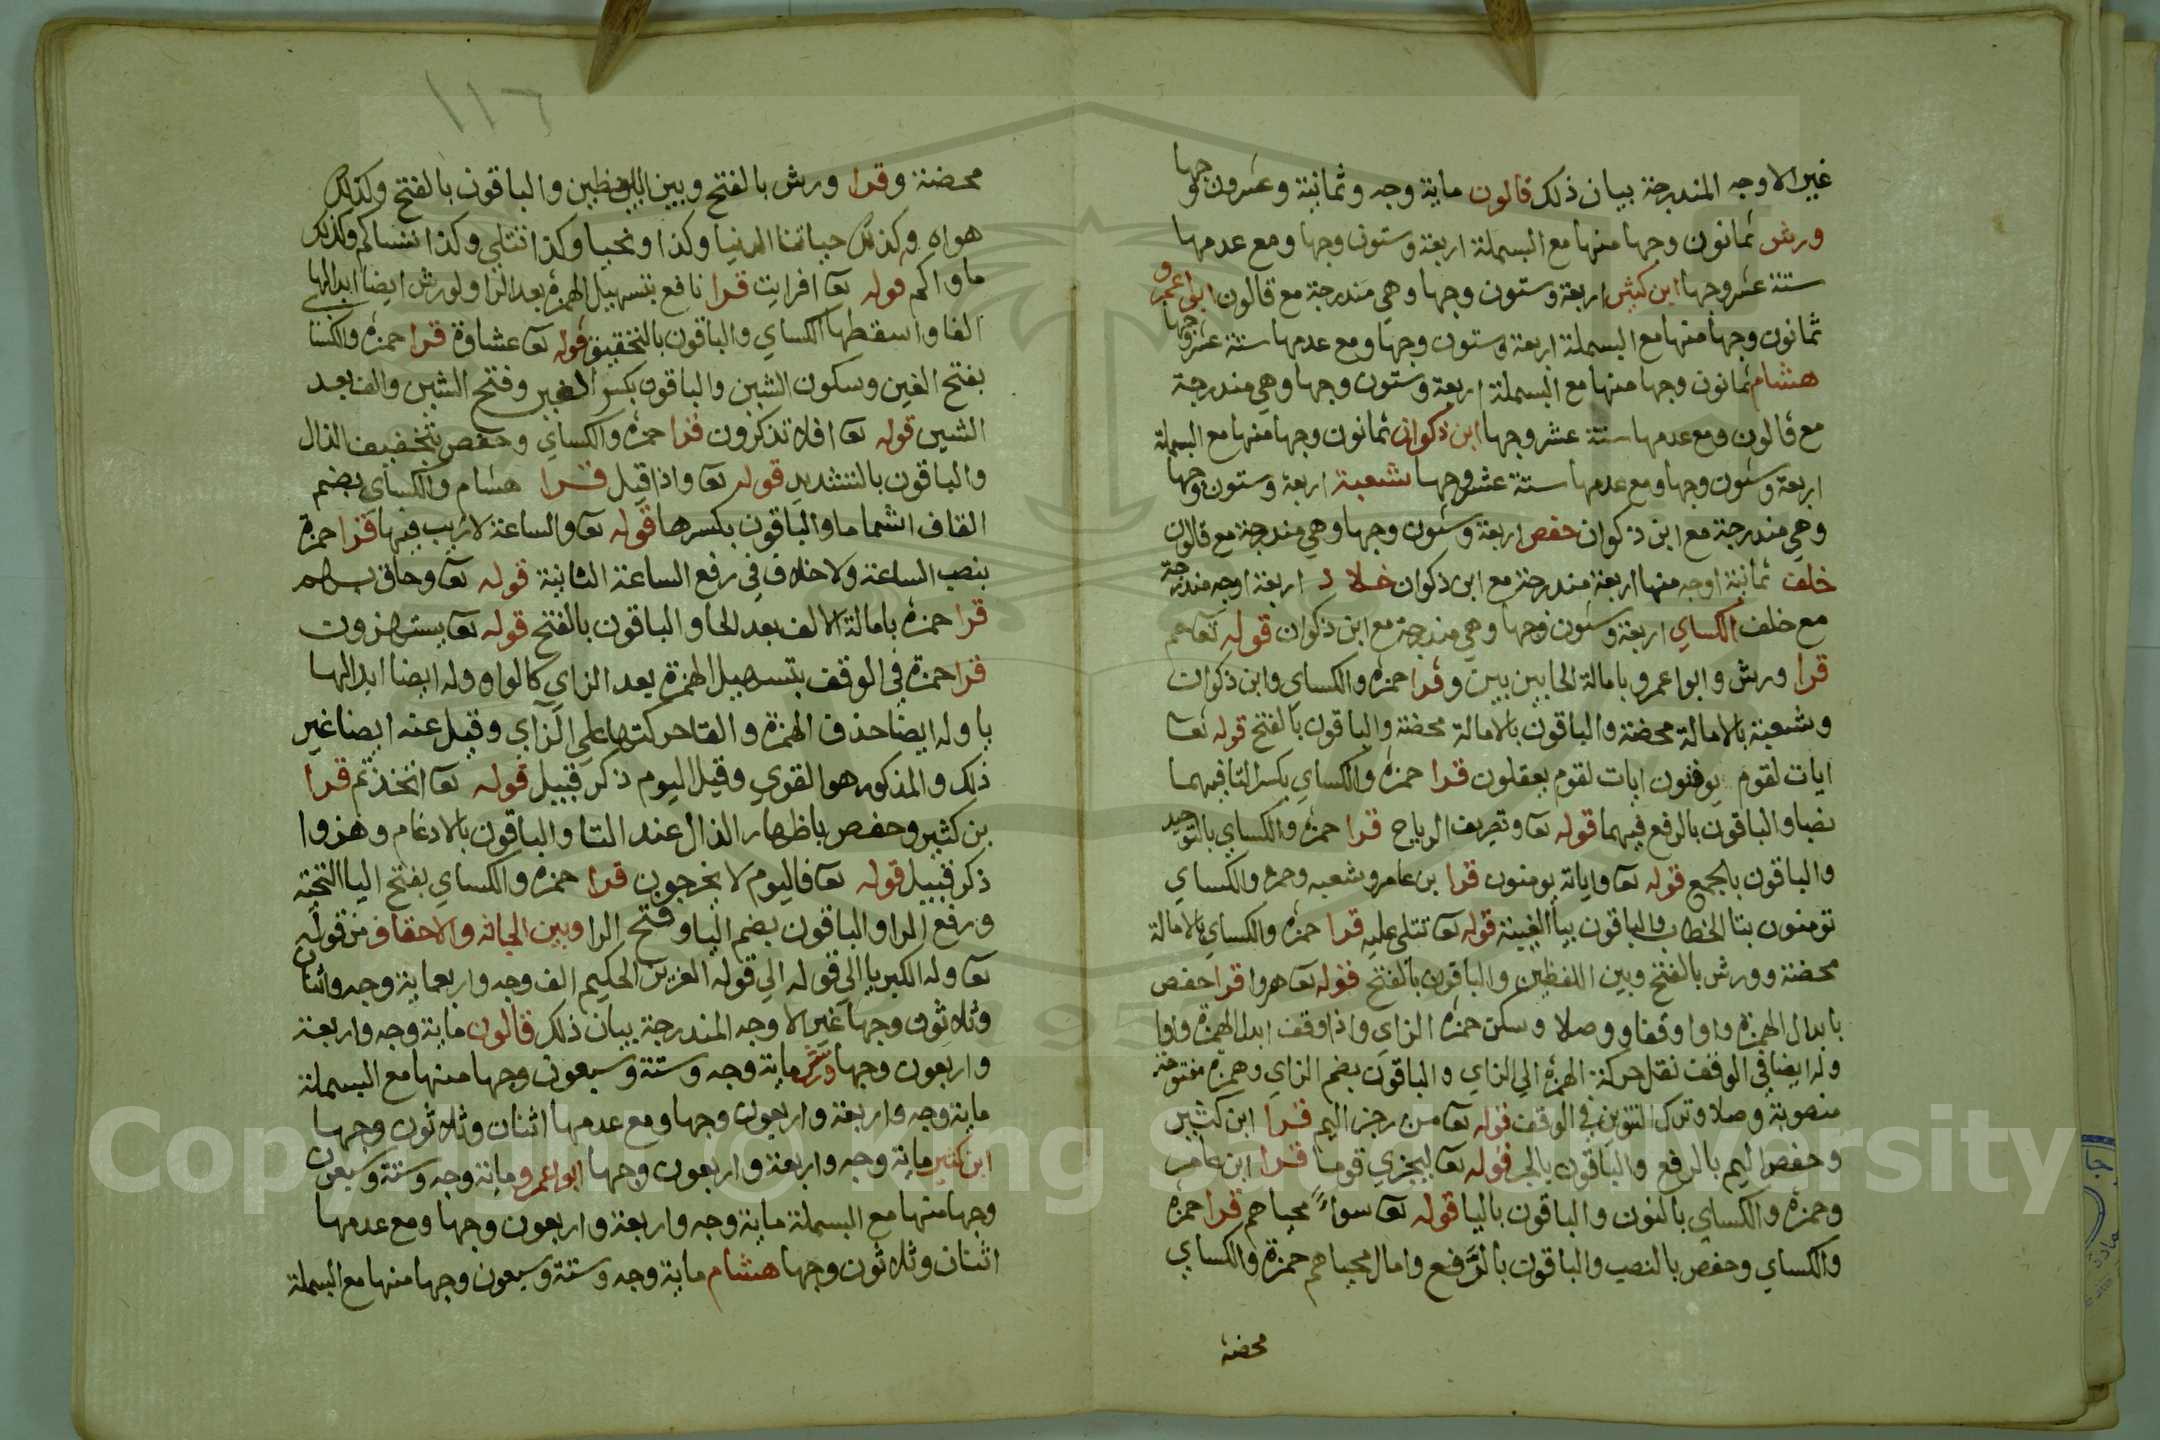 غير الاوجه المندرجة بيان ذلك قالون ماية وجه وثمانية وعشرون وجها
ورش ثمانون وجها منها مع البسملة اربعة وستون وجها ومع عدمها
ستة عشر وجها ابن كثير اربعة وستون وجها وهي مندرجة مع قالون ابو عمرو
ثمانون وجها منها مع البسملة اربعة وستون وجها ومع عدمها ستة عشر وجها
هشام ثمانون وجها منها مع البسملة اربعة وستون وجها وهي مندرجة
مع قالون ومع عدمها ستة عشر وجها ابن ذكوان ثمانون وجها منها مع البسملة
اربعة وستون وجها ومع عدمها ستة عشر وجها شعبة اربعة وستون وجها
وهي مندرجة مع ابن ذكوان حفص اربعة وستون وجها وهي مندرجة مع قالون
خلف ثمانية اوجه منها اربعة مندرجة مع ابن ذكوان خلاد اربعة اوجه مندرجة
مع خلف الكساي اربعة وستون وجها وهي مندرجة مع ابن ذكوان قوله تعا حم
قرا ورش وابوا عمرو بامالة الحا بين بين وقرا حمزه والكساي وابن ذكوان
وشعبة بالامالة محضة والباقون بالامالة محضة والباقون بالفتح قوله تعا
ايات لقوم يوقنون ايات لقوم يعقلون قرا حمزه والكساي بكسر التا فيهما
نصبا والباقون بالرفع فيهما قوله تعا وتصريف الرياح قرا حمزه والكساي بالتوحيد
والباقون بالجمع قوله تعا واياته يومنون قرا بن عامر وشعبه وحمزه والكساي
تومنون بتا الخطاب والباقون بيا الغيبة قوله تعا تتلى عليه قرا حمزه والكساي بالامالة
محضة وورش بالفتح وبين اللفظين والباقون بالفتح قوله تعا هزوا قرا حفص
بابدال الهمزه واوا وقفا ووصلا وسكن حمزه الزاي واذا وقف ابدل الهمزة واوا
وله ايضا في الوقف نقل حركة الهمزه الي الزاي والباقون بضم الزاي وهمزه مفتوحة
منصوبة وصلا وترك التنوين في الوقف قوله تعا من رجز اليم قرا ابن كثير
وحفص اليم بالرفع والباقون بالجر قوله تعا ليجزي قوما قرا ابن عامر
وحمزه والكساي بالنون والباقون باليا قوله تعا سواءً محياهم قرا حمزه
والكساي وحفص بالنصب والباقون بالرفع وامال محياهم حمزة والكساي
محضة
١١٦
محضة وقرا ورش بالفتح وبين اللفظين والباقون بالفتح وكذلك
هواه وكذلك حياتنا الدنيا وكذا ونحيا وكذا تتلي وكذا ننساكم وكذلك
ماواكم قوله تعا افرايت قرا نافع بتسهيل الهمزة بعد الرا ولورش ايضا ابدالها
الفا واسقطها الكساي والباقون بالتحقيق قوله تعا غشاوة قرا حمزه والكسا
بفتح الغين وسكون الشين والباقون بكسر الغين وفتح الشين والف بعد
الشين قوله تعا افلا تذكرون قرا حمزه والكساي وحفص بتخفيف الذال
والباقون بالتشديد قوله تعا واذا قيل قرا هشام والكساي بضم
القاف اشماما والباقون بكسرها قوله تعا والساعة لا ريب فيها قرا حمزة
بنصب الساعة ولا خلاف في رفع الساعة الثانية قوله تعا وحاق بهم
قرا حمزه بامالة الالف بعد الحا والباقون بالفتح قوله تعا يستهزون
قرا حمزة في الوقف بتسهيل الهمزة بعد الزاي كالواو وله ايضا ابدالها
يا وله ايضا حذف الهمزة والقا حركتها علي الزاي وقيل عنه ايضا غير
ذلك والمذكور هو القوي وقيل اليوم ذكر قبيل قوله تعا اتخذتم قرا
بن كثير وحفص باظهار الذال عند التا والباقون بالادغام وهزوا
ذكر قبيل قوله تعا فاليوم لا يخرجون قرا حمزه والكساي بفتح اليا التحتية
ورفع الرا والباقون بضم اليا وفتح الرا وبين الجاثه والاحقاف من قوله
تعا وله الكبريا الي قوله الي قوله العزيز الحكيم الف وجه واربعماية وجه واثنان
وثلاثون وجها غير الاوجه المندرجة بيان ذلك قالون ماية وجه واربعة
واربعون وجها ورش ماية وجه وستة وسبعون وجها منها مع البسملة
ماية وجه واربعة واربعون وجها ومع عدمها اثنان وثلاثون وجها
ابن كثير ماية وجه واربعة واربعون وجها ابوا عمرو ماية وجه وستة وسبعون
وجها منها مع البسملة ماية وجه واربعة واربعون وجها ومع عدمها
اثنان وثلاثون وجها هشام ماية وجه وستة وسبعون وجها منها مع البسملة
Copyright © King Saud University